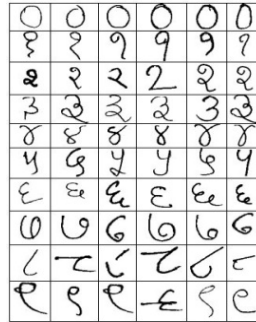 ० ० ० ० ० ०
१ १ १ १ १ १
२ २ २ २ २ २
३ ३ ३ ३ ३ ३
४ ४ ४ ४ ४ ४
५ ५ ५ ५ ५ ५
६ ६ ६ ६ ६ ६
७ ७ ७ ७ ७ ७
८ ८ ८ ८ ८ ८
९ ९ ९ ९ ९ ९